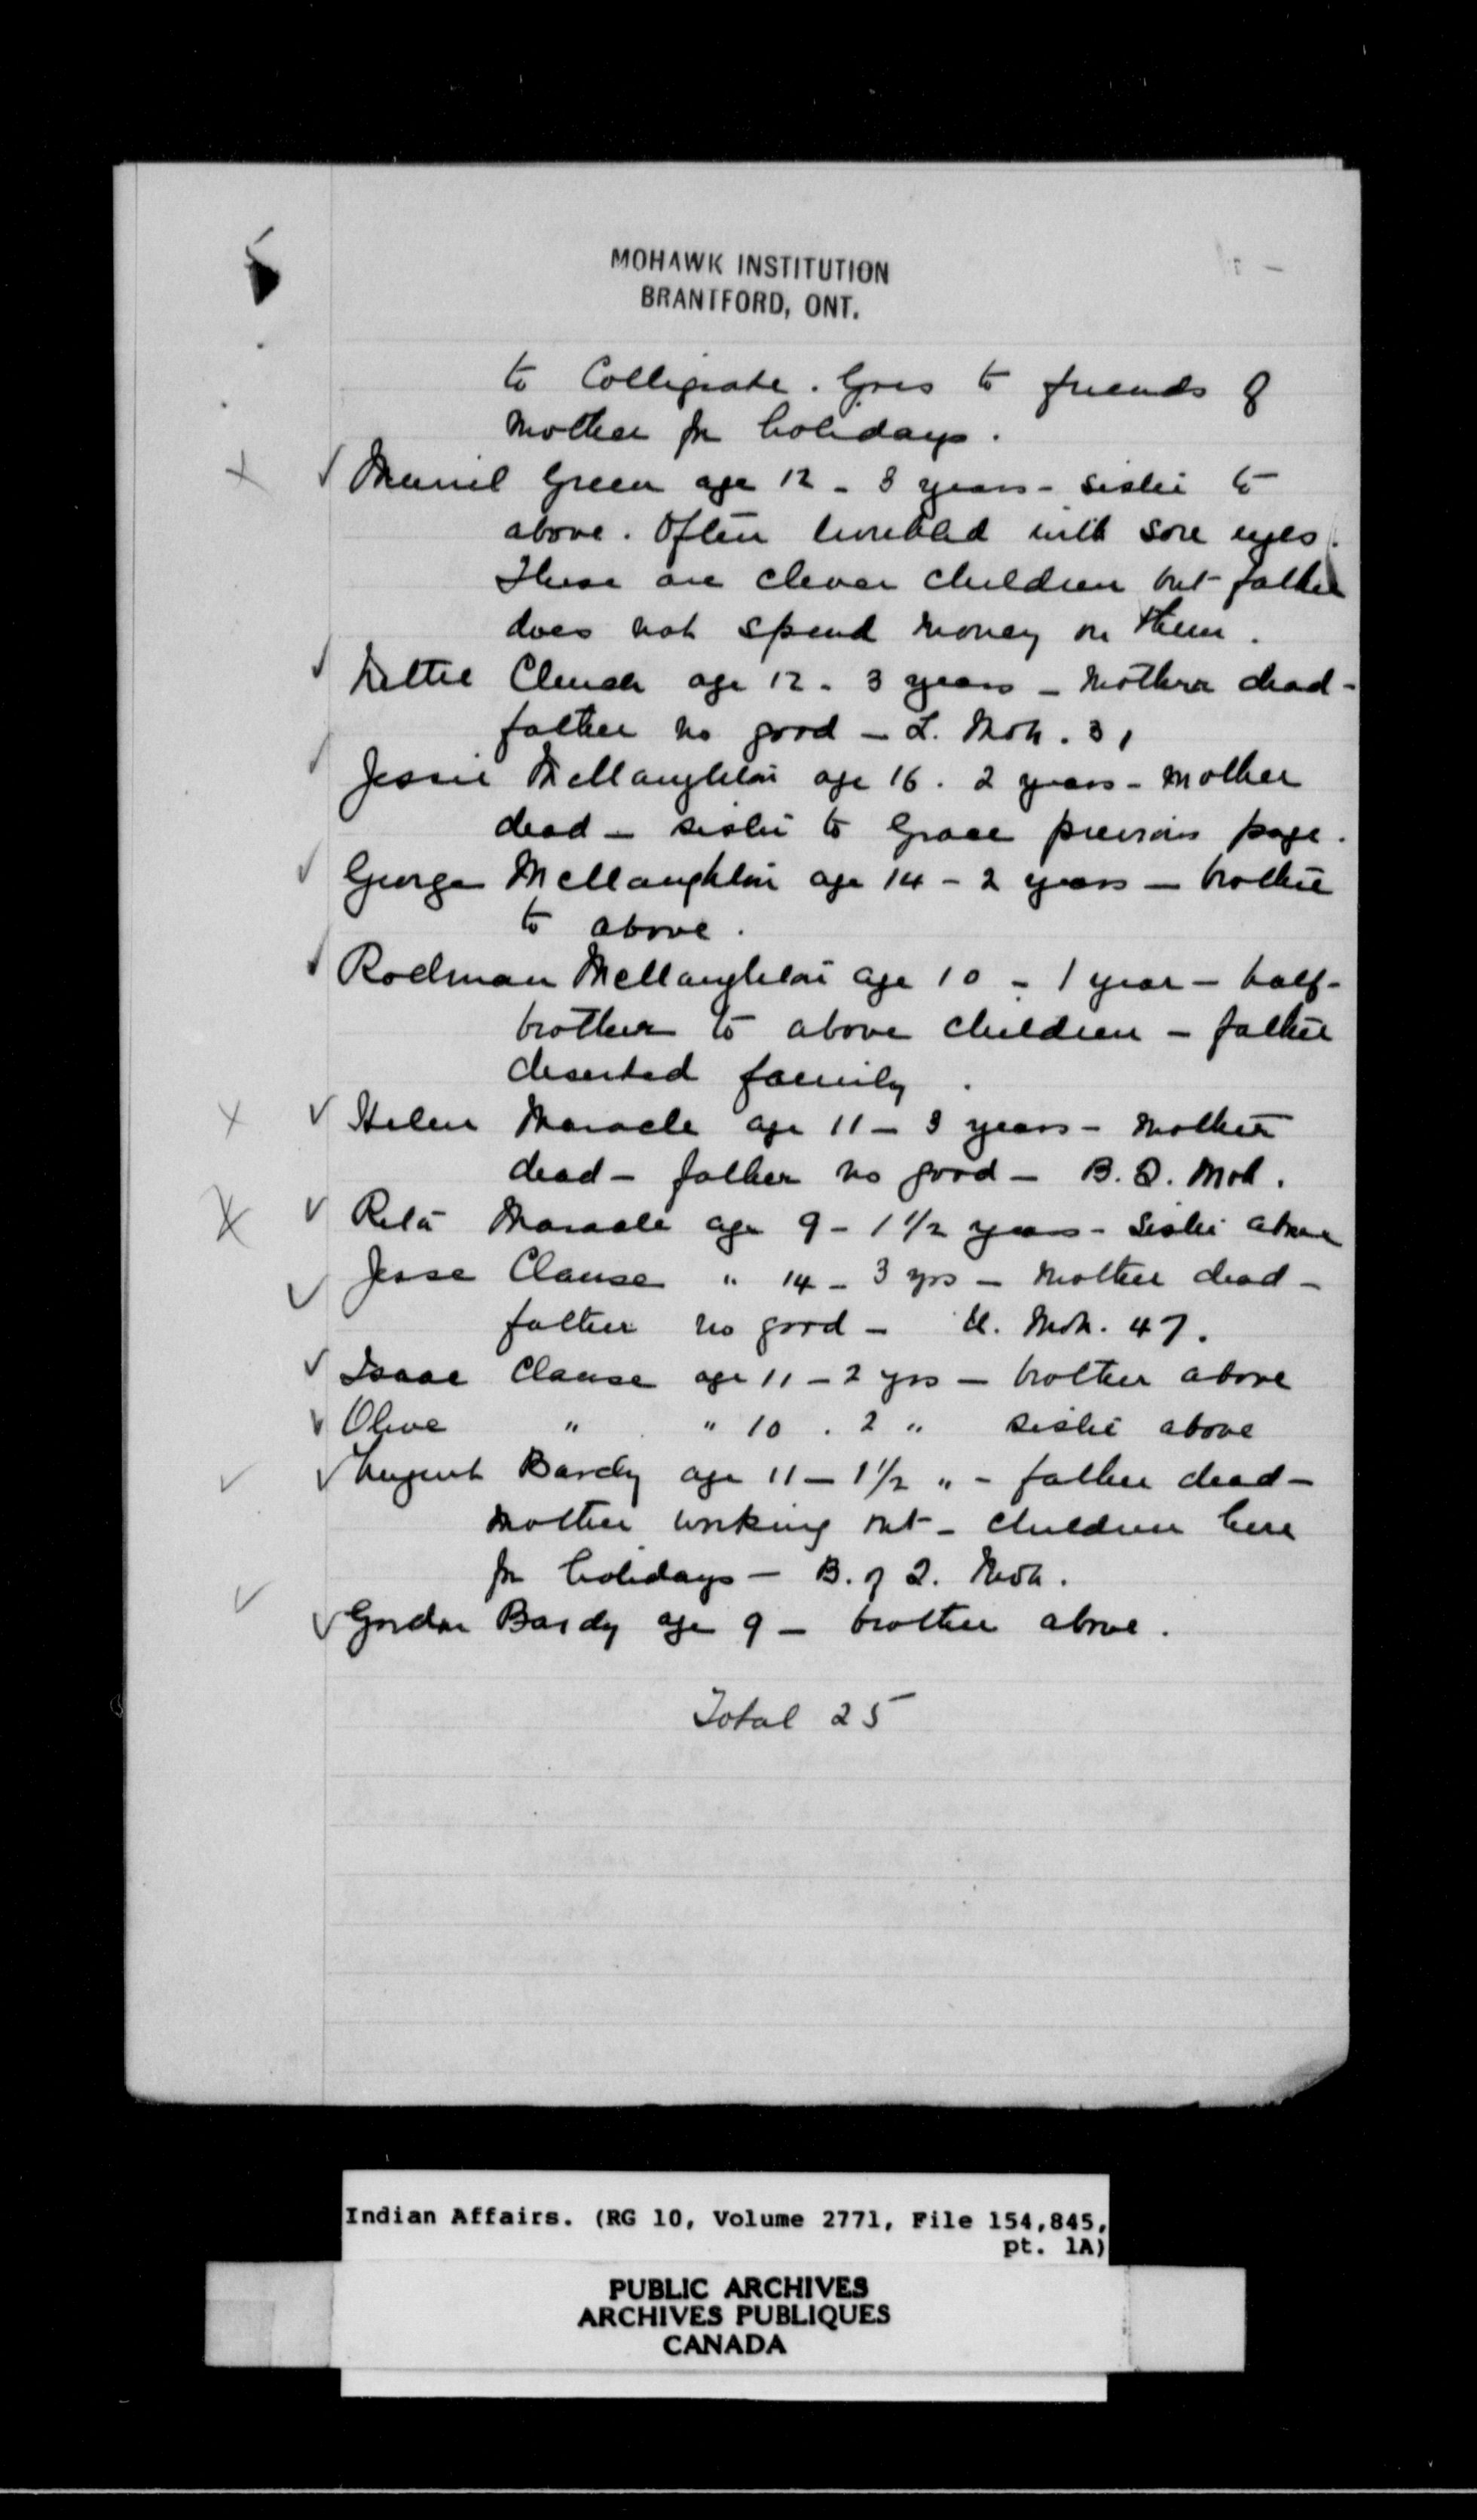 MOHAWK INSTITUTION
BRANTFORD, ONT.
to Collegiate. Goes to friends of
mother for holidays.
Muriel Green age 12 - 3 years - sister to
above. Often troubled with sore eyes.
These are clever children but father
does not spend money on them.
Lettie Clench age 12 - 3 years - mother dead -
father no good - L. Moh. 31
Jessie McNaughton age 16. 2 years - mother
dead - sister to Grace previous page.
George McNaughton age 14 - 2 years - brother
to above.
Rodman McNaughton age 10 - 1 year - half-
brother to above children - father
deserted family.
Helen Maracle age 11 - 3 years - mother
dead - father no good - B. Q. Moh.
Reta Maracle age 9 - 1 1/2 years - sister above
Jesse Clause " 14 - 3 yrs - mother dead -
father no good - U. Moh. 47.
Isaac Clause age 11 - 2 yrs - brother above
Olive " " 10 . 2 " sister above
Nugent Bardy age 11 - 1 1/2 " - father dead -
mother working out - children here
for holidays - B. of Q. Moh.
Gordon Bardy age 9 - brother above.
Total 25
Indian Affairs. (RG 10, Volume 2771, File 154,845,
pt. 1A)
PUBLIC ARCHIVES
ARCHIVES PUBLIQUES
CANADA